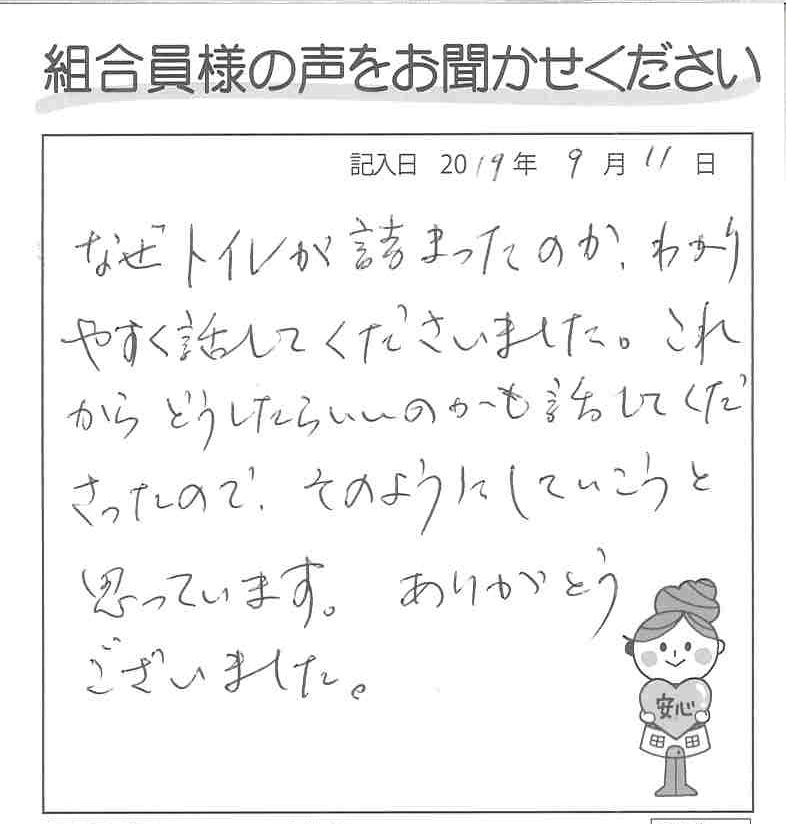 組合員様の声をお聞かせください
記入日 2019年 9月 11日
なぜトイレが詰まったのか、わかり
やすく話してくださいました。これ
からどうしたらいいのかも話してくだ
さったので、そのようにしていこうと
思っています。ありがとう
ございました。
安心